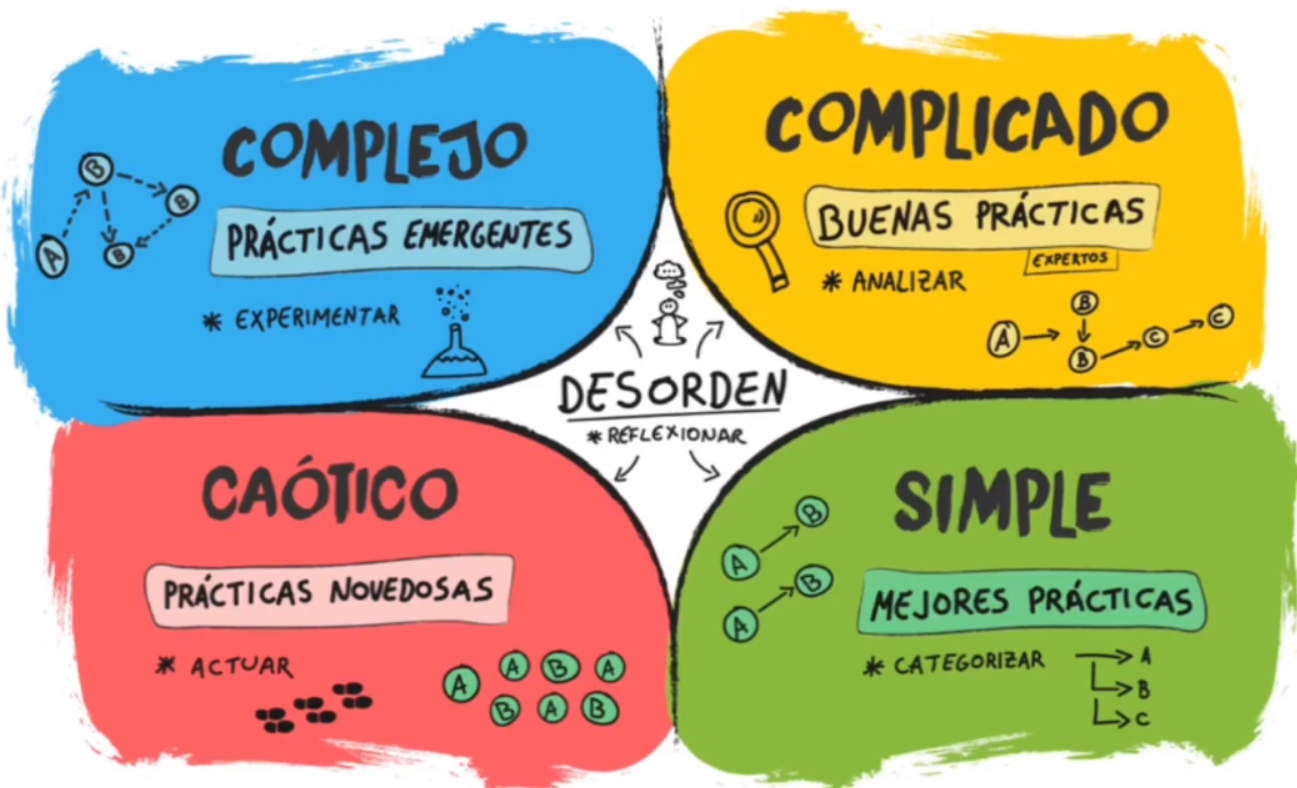 COMPLEJO
PRÁCTICAS EMERGENTES
* EXPERIMENTAR
A
B
B
B
COMPLICADO
BUENAS PRÁCTICAS
EXPERTOS
* ANALIZAR
A
B
B
C
C
DESORDEN
* REFLEXIONAR
CAÓTICO
PRÁCTICAS NOVEDOSAS
* ACTUAR
A A B A
B A B
SIMPLE
B
A
B
A
MEJORES PRÁCTICAS
* CATEGORIZAR
A
B
C